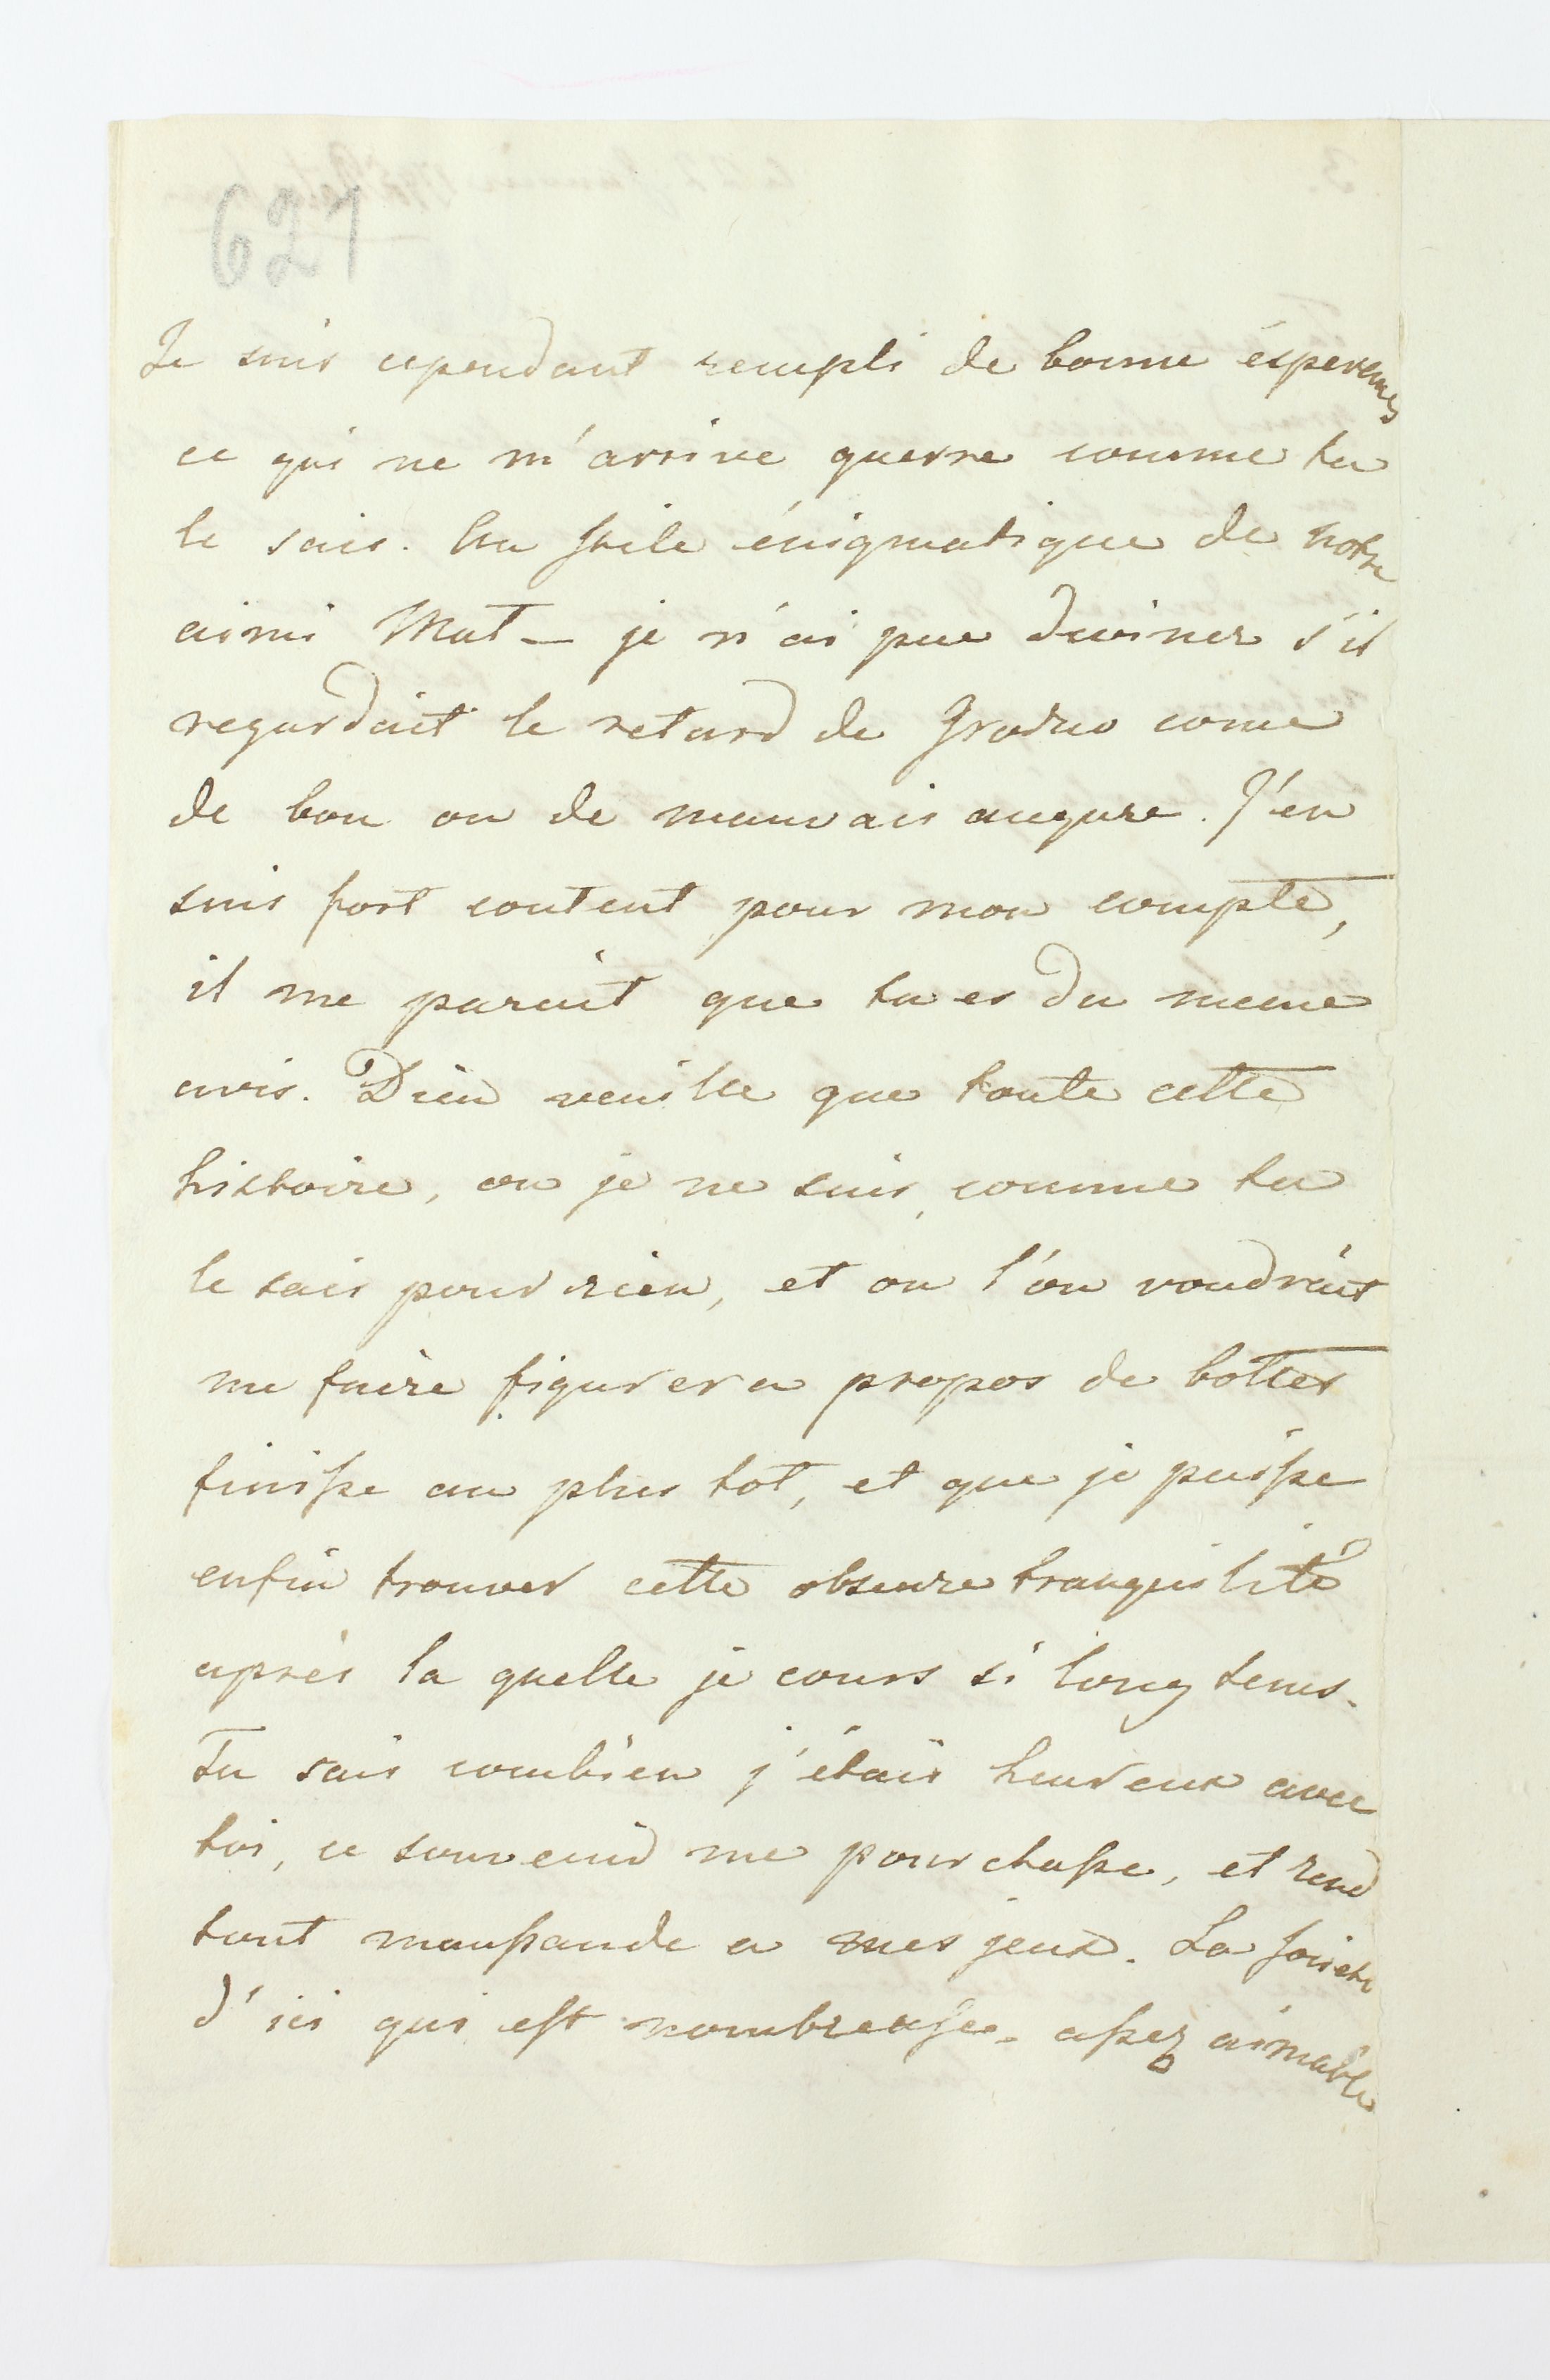 621
Je suis cependant rempli de bonne ésperences
ce qui ne m'arrive guerre comme tu
le sais. Au stile énigmatique de notre
aimi Mat — je n'ai pue diviner s'il
regardait le retard de Grodno come
de bon ou de mauvais augure. J'en
suis fort content pour mon compte,
il me parait que tu es du meme
avis. Dieu veuille que toute cette
histoire, ou je ne suis, comme tu
le sais pour rien, et ou l'on voudrait
me faire figurer a propos de bottes
finisse au plus tot, et que je puisse
enfin trouver cette obscure tranquilité
après la quelle je cours si longtems.
Tu sais combien j'étais heureux avec
toi, ce souvenir me pourchasse, et rend
tout maussaude a mes jeux. La societe
d'ici qui est nombreuse, assez aimable